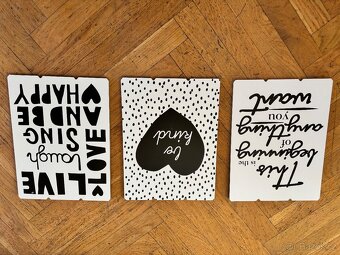 LIVE
laugh
LOVE
SING
AND BE
HAPPY
be
kind
This
is the
beginning
of
anything
you
want